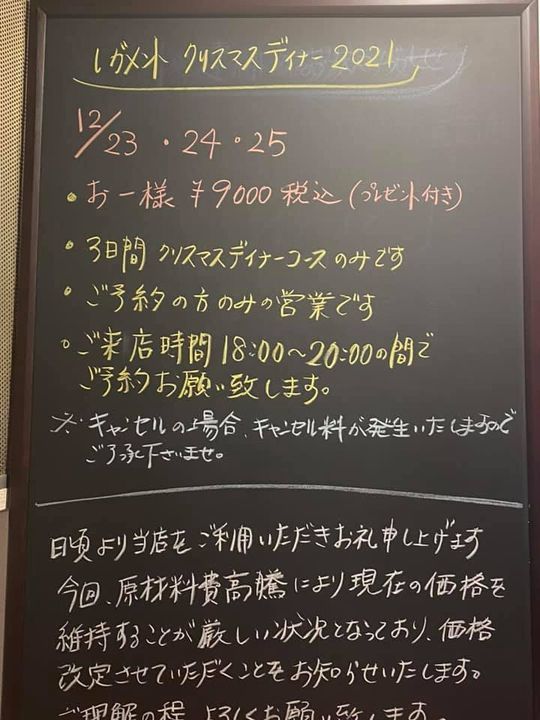 レガメント クリスマスディナー 2021
12/23・24・25
・お一様 ¥9000 税込 (プレゼント付き)
・3日間 クリスマスディナーコースのみです
・ご予約の方のみの営業です
・ご来店時間 18:00～20:00の間で
ご予約お願い致します。
※キャンセルの場合、キャンセル料が発生いたしますので
ご了承下さいませ。
日頃より当店をご利用いただきお礼申し上げます
今回、原材料費高騰により現在の価格を
維持することが厳しい状況となっており、価格
改定させていただくことをお知らせいたします。
ご理解の程 よろしくお願い致します。